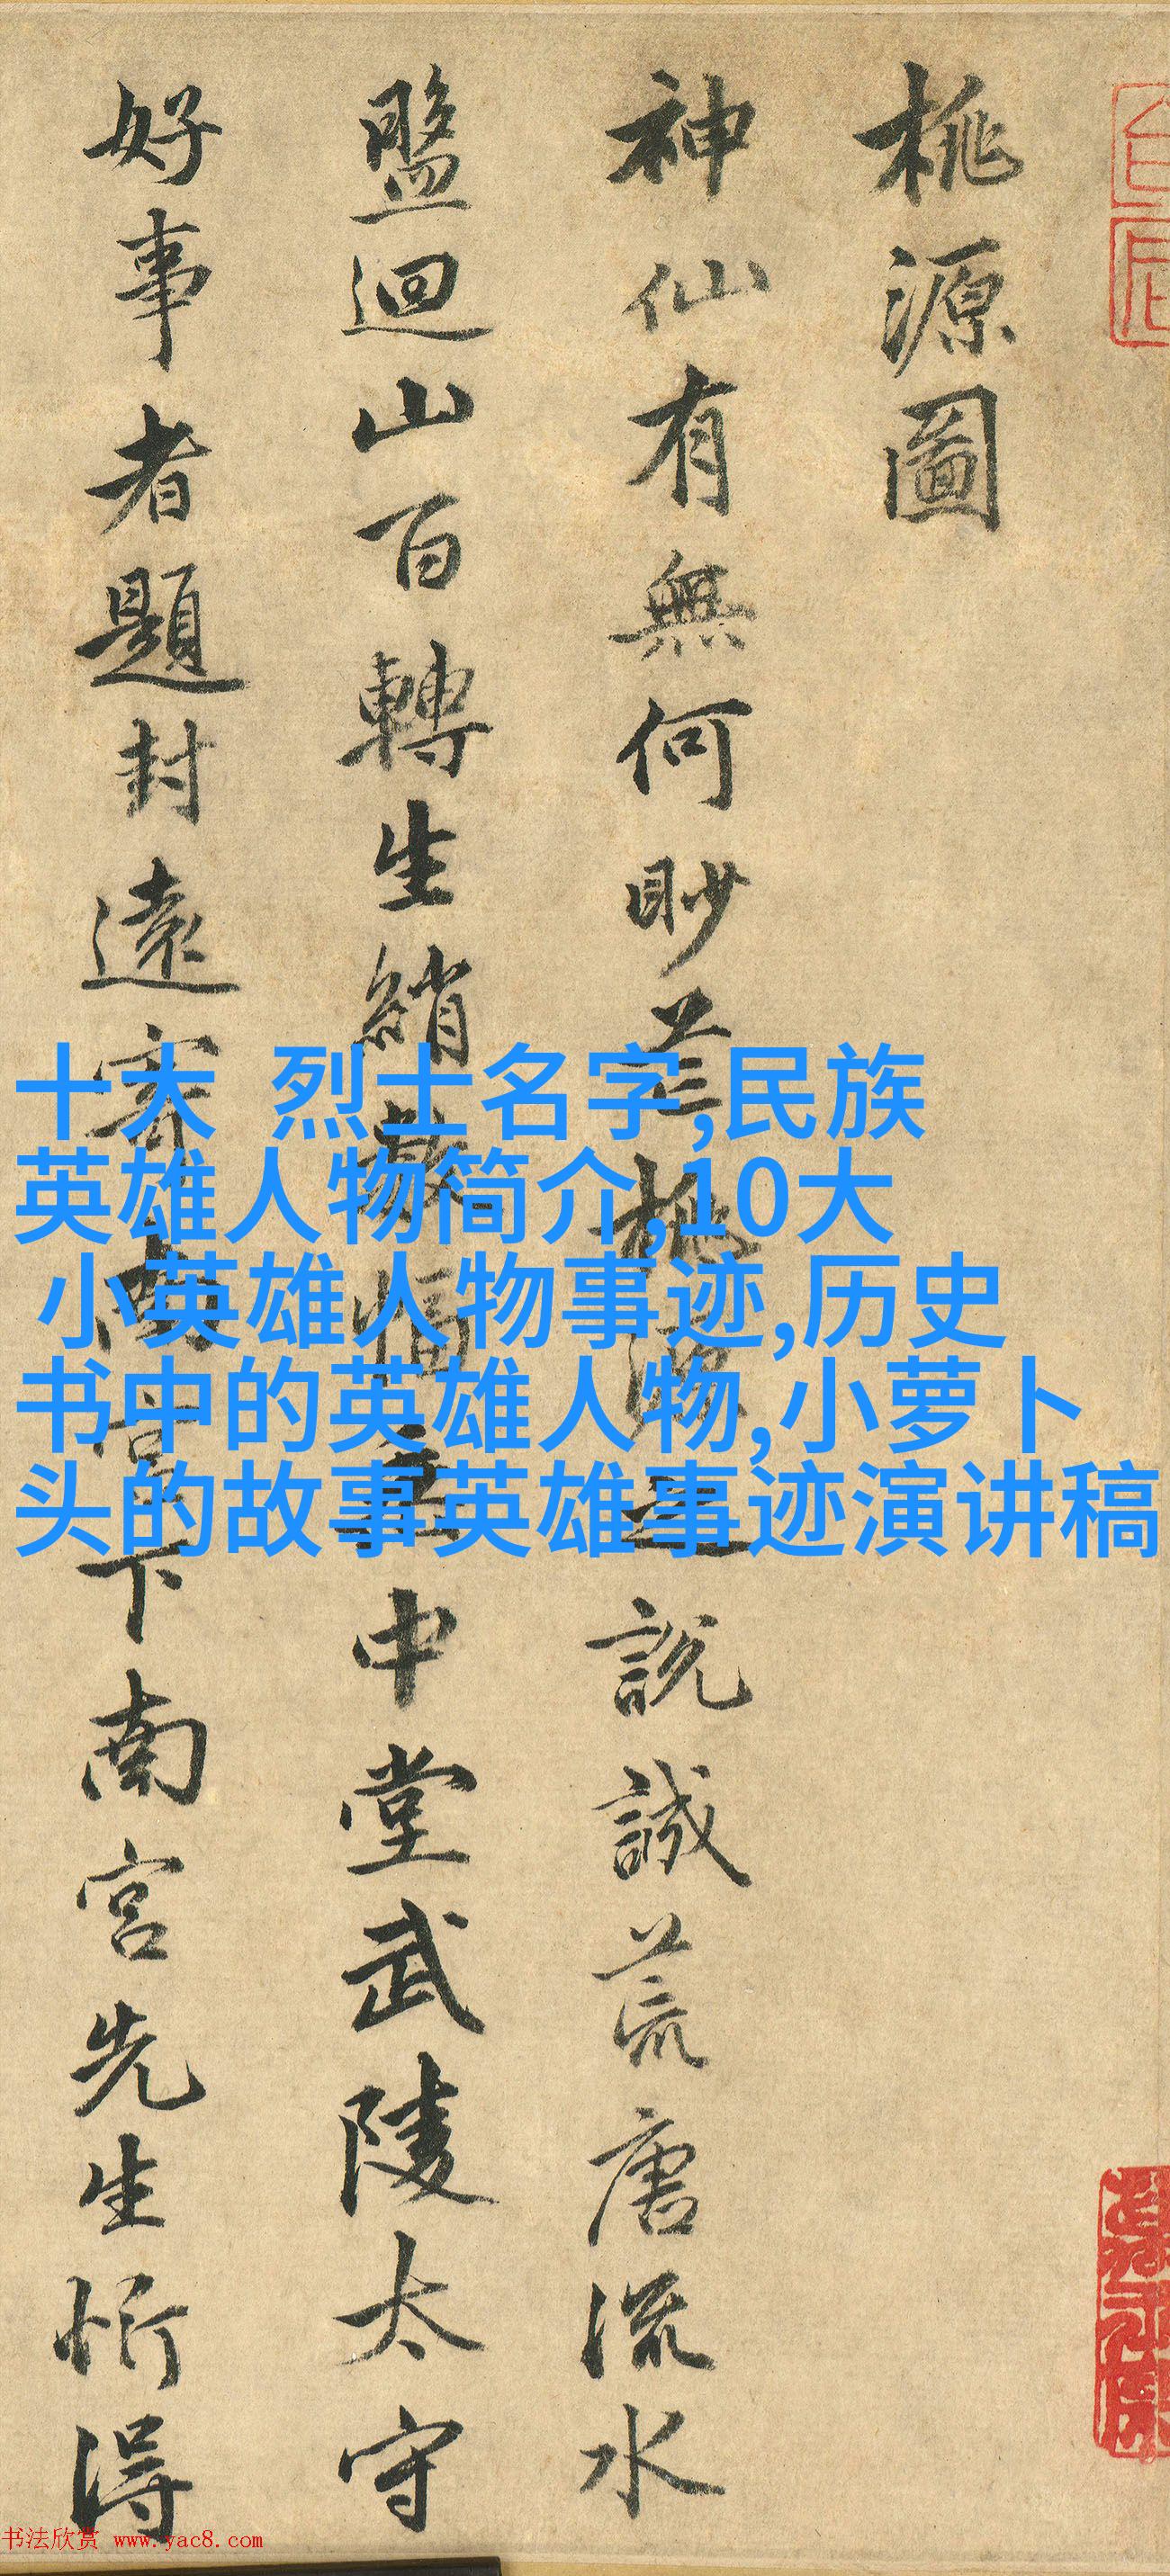 桃源圖
神仙有無何眇芒桃源之說誠荒唐流水
盤迴山百轉生綃數幅垂中堂武陵太守
好事者題封遠寄南宮下南宮先生忻得
十大 烈士名字,民族
英雄人物简介,10大
小英雄人物事迹,历史
书中的英雄人物,小萝卜
头的故事英雄事迹演讲稿
书法欣赏 www.yac8.com